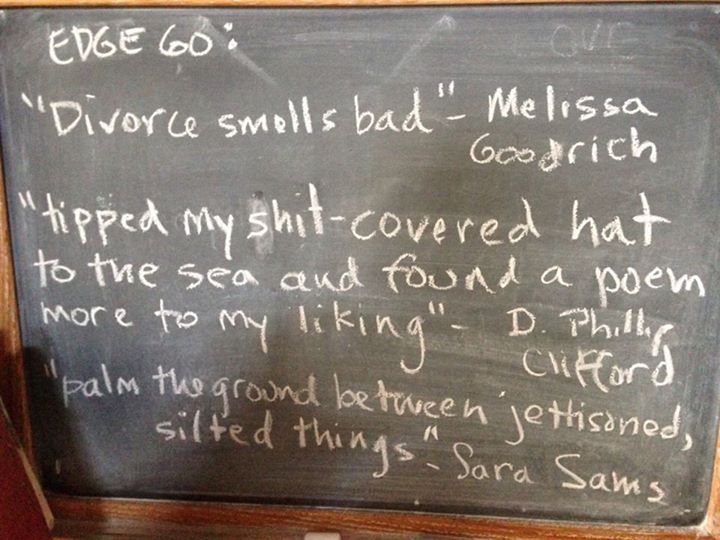 EDGE 60:
"Divorce smells bad" - Melissa
Goodrich
"tipped my shit-covered hat
to the sea and found a poem
more to my liking" - D. Phillip
Clifford
"palm the ground between jettisoned,
silted things" - Sara Sams